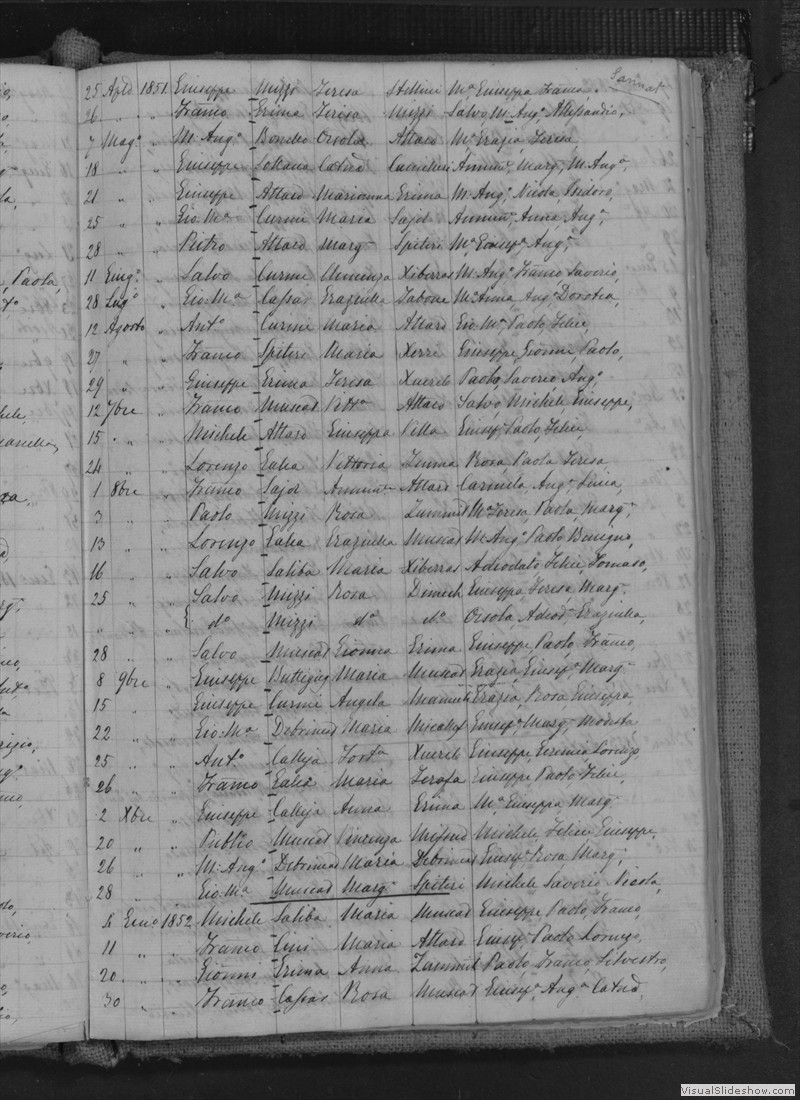 Sannat
25 Aple 1851 Giuseppe Mizzi Teresa Stellini Ma Giuseppa Franca.
26 " " Franco Grima Teresa Mizzi Salvo M. Ango Allessandro,
7 Maggo " M. Ango Bonello Orsola Attard Ma Grazia, Teresa,
18 " " Giuseppe Catna Annunta, Marga, M. Anga,
21 " " Giuseppe Attard Marianna Grima M. Ango Nicola, Isidoro,
25 " " Gio: Ma Curmi Maria Said Annunta, Anna, Anga,
28 " " Pietro Attard Marga Spiteri Ma Giusepa Anga,
11 Giugo " Salvo Curmi Xiberras M. Ango Franco Saverio,
28 Lugo " Gio: Ma Cassar Graziulla Tabone Ma Anna Anga Dorotea,
12 Agosto " Anto Curmi Maria Attard Gio Ma Paolo, Felice,
27 " " Franco Spiteri Maria Xerri Giuseppe, Gionni, Paolo,
29 " " Giuseppe Grima Teresa Xuereb Paolo, Saverio, Ango
12 7bre " Franco Muscat Vitta Attard Salvo, Michele Giuseppe,
15 " " Michele Attard Giuseppa Vella Giuse, Paolo, Felice,
24 " " Lorenzo Galea Vittoria Rosa Paola Teresa
1 8bre " Franco Said Annunta Attard Carmela, Anga,
3 " " Paolo Mizzi Rosa Zammit Ma Teresa, Paola, Marga,
13 " " Lorenzo Galea Graziulla Muscat M. Ango Paolo Benigno,
16 " " Salvo Saliba Maria Xiberras Adeodato Felice, Tomaso,
25 " " Salvo Mizzi Rosa Dimech Giuseppa, Teresa, Marga
" " " do Mizzi do do Orsola, Adeod, Graziulla,
28 " " Salvo Muscat Gionna Grima Giuseppe, Paolo, Franco,
8 9bre " Giuseppe Buttigieg Maria Muscat Grazia, Giusepa Marga
15 " " Giuseppe Curmi Angela Grazia, Rosa Giuseppa,
22 " " Gio: Ma Debrincat Maria Micallef Giusepa, Marga, Modesta,
25 " " Anto Calleja Forta Xuereb Giuseppe, Geremia, Lorenzo,
26 " " Franco Galea Maria Giuseppe Paolo Felice,
2 Xbre " Giuseppe Calleja Anna Grima Ma Giuseppa Marga
20 " " Publio Muscat Vincenza Mifsud Michele Felice Giuseppe,
26 " " M. Ango Debrincat Maria Debrincat Giusepa Rosa Marga,
28 " " Gio: Ma Muscat Marga Spiteri Michele Saverio, Nicola,
4 Genno 1852 Michele Saliba Maria Muscat Giuseppe, Paolo, Franco,
11 " " Franco Cini Maria Attard Giuse, Paolo Lorenzo,
20 " " Gionni Grima Anna Zammit Paolo Franco Silvestro,
30 " " Franco Cassar Rosa Muscat Giusepa, Anga Catna,
VisualSlideshow.com